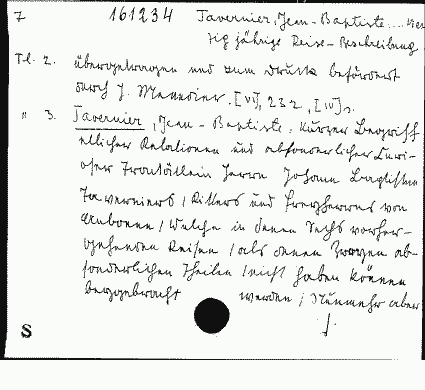 7 161234 Tavernier, Jean-Baptiste.... Vier
zigjährige Reise-Beschreibung
Tl. 2. übergetragen und zum Druck befördert
durch J. Menudier. [VI], 232, [IV] S.
" 3. Tavernier, Jean-Baptiste: Kurzer Begriff
etlicher Relationen und absonderlicher Curi-
oser Herrn Johann Baptisten
Taverniers / Ritters und Freyherrns von
Aubonne / Welche in denen Sechs vorher-
gehenden Reisen / als denen ab-
sonderlichen Theilen / nicht haben können
beygebracht werden / Nunmehr aber
S